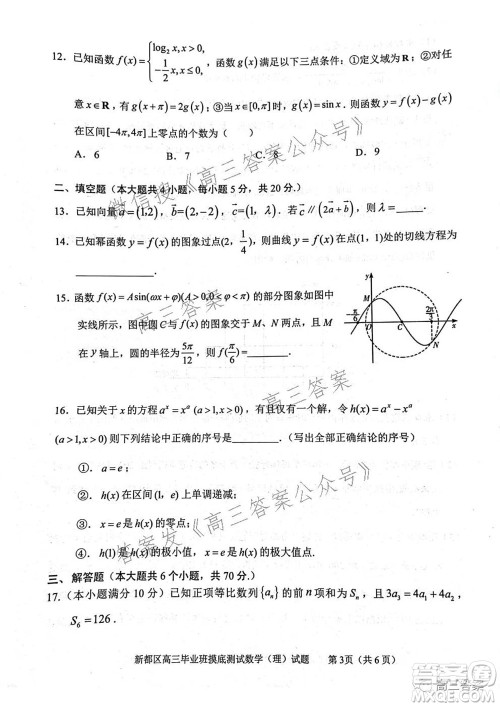 12. 已知函数 f(x)={log₂x, x>0, -1/2 x, x≤0, 函数 g(x) 满足以下三点条件：①定义域为 R；②对任
意 x∈R，有 g(x+π)=2g(x)；③当 x∈[0,π] 时，g(x)=sin x. 则函数 y=f(x)-g(x)
在区间[-4π,4π]上零点的个数为（ ）
A．6 B．7 C．8 D．9
二、填空题（本大题共 4 小题，每小题 5 分，共 20 分.）
13. 已知向量 a=(1,2)，b=(2,-2)，c=(1,λ). 若 c∥(2a+b)，则λ=______.
14. 已知幂函数 y=f(x) 的图象过点(2, 1/4)，则函数 y=f(x) 在点(1, 1)处的切线方程为
______.
15. 函数 f(x)=Asin(ωx+φ)(A>0,0<φ<π) 的部分图象如图中
实线所示，图中圆 C 与 f(x) 的图象交于 M、N 两点，且 M
在 y 轴上，圆的半径为 5π/12，则 f(π/6)=______.
y
M
-π/6
O
C
2π/3
x
N
16. 已知关于 x 的方程 aˣ=xᵃ(a>1,x>0)，有且仅有一个解，令 h(x)=aˣ-xᵃ
(a>1,x>0) 则下列结论中正确的序号是______.（写出全部正确结论的序号）
①．a=e；
②．h(x) 在区间(1，e)上单调递减；
③．x=e 是 h(x) 的零点；
④．x=1 是 h(x) 的极小值，x=e 是 h(x) 的极大值点.
三、解答题（本大题共 6 个小题，共 70 分.）
17.（本小题满分 10 分）已知正项等比数列{aₙ}的前 n 项和为 Sₙ，且满足 3a₃=4a₂+a₄，
S₆=126．
新都区高三毕业班摸底测试数学（理）试题 第 3页（共 6 页）
微信搜《高三答案公众号》
高三答案
高三答案
答案发《高三答案公众号》
高三答案